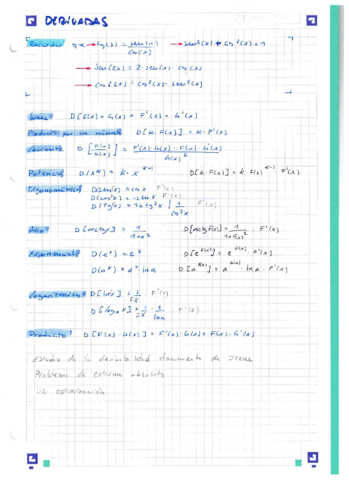 DERIVADAS
Recordar que → tg(x) = sen(x)/cos(x) → sen²(x) + cos²(x) = 1
→ sen(2x) = 2 · sen(x) · cos(x)
→ cos(2x) = cos²(x) - sen²(x)
Suma: D[F(x) + G(x)] = F'(x) + G'(x)
Producto por un número D[k · F(x)] = k · F'(x)
Cociente D[F(x)/G(x)] = F'(x)·G(x) - F(x)·G'(x) / G(x)²
Potencia: D(x^α) = k · x^(α-1) D[k·F(x)] = k F(x)^(α-1) · F'(x)
Trigonométricas D(sen x) = cos x · F'(x)
D(cos x) = -sen x · F'(x)
D(tg x) = 1 + tg²x | 1/cos²x · F'(x)
Arco: D[arctg x] = 1/1+x² D[arctg F(x)] = 1/1+F(x)² · F'(x)
Exponencial: D(e^x) = e^x D[e^F(x)] = e^F(x) · F'(x)
D(a^x) = a^x · ln a D[a^F(x)] = a^F(x) · ln a · F'(x)
Logarítmica: D[ln x] = 1/x · F'(x)
D[log_a x] = 1/x · 1/ln a · F'(x)
Producto: D[F(x) · G(x)] = F'(x) · G(x) + F(x) · G'(x)
Estudio de la derivabilidad documento de
Problema de extremo absoluto
optimización